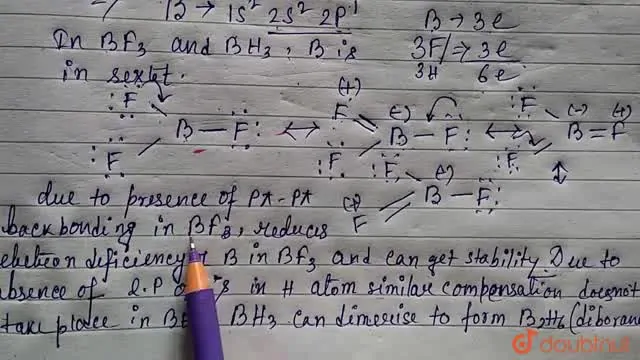 B → 1S² 2S² 2P¹ B → 3e
In BF3 and BH3, B is 3F/ → 3e
in sextet. 3H 6e
F B — F: ↔ F B — F: ↔ F B = F
:F F F
B — F:
F
due to presence of Pπ-Pπ
backbonding in BF3, reduces
electron deficiency B in BF3 and can get stability. Due to
absence of l.P in H atom similar compensation doesnot
take place in BH3 can dimerise to form B2H6 (diborane
doubtnut